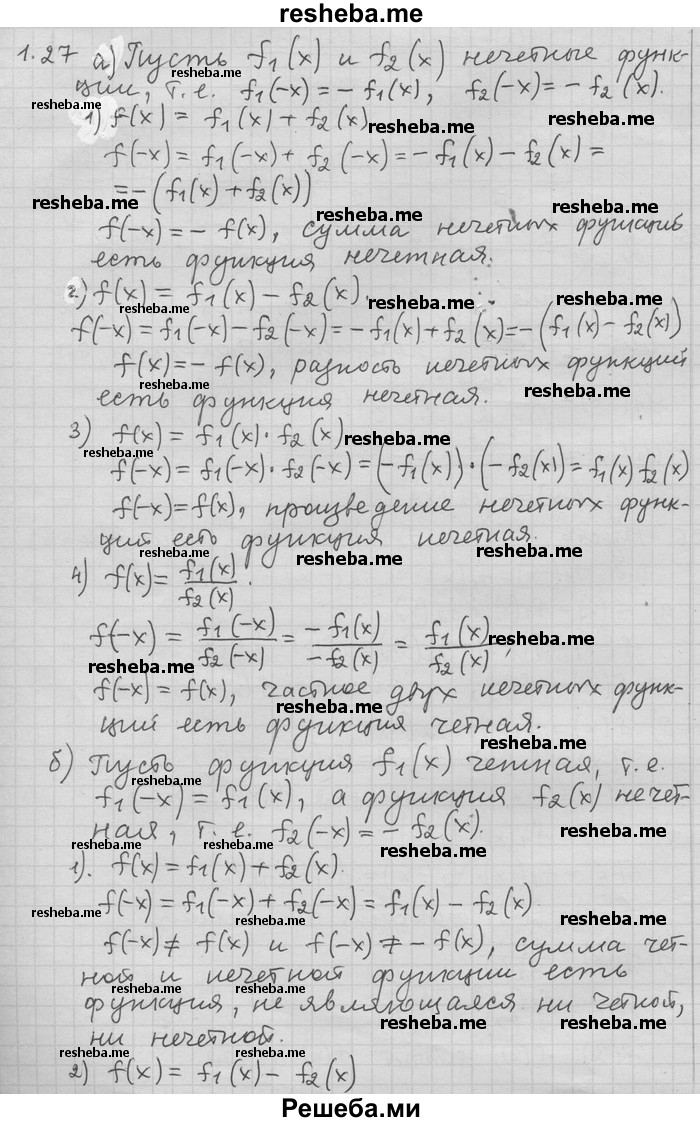 resheba.me
1.27 а) Пусть f₁(x) и f₂(x) нечетные функ-
ции, т.е. f₁(-x) = -f₁(x), f₂(-x) = -f₂(x).
1) f(x) = f₁(x) + f₂(x)
f(-x) = f₁(-x) + f₂(-x) = -f₁(x) - f₂(x) =
= -(f₁(x) + f₂(x))
f(-x) = -f(x), сумма нечетных функций
есть функция нечетная.
2) f(x) = f₁(x) - f₂(x).
f(-x) = f₁(-x) - f₂(-x) = -f₁(x) + f₂(x) = -(f₁(x) - f₂(x))
f(x) = -f(x), разность нечетных функций
есть функция нечетная.
3) f(x) = f₁(x) · f₂(x)
f(-x) = f₁(-x) · f₂(-x) = (-f₁(x)) · (-f₂(x)) = f₁(x) f₂(x)
f(-x) = f(x), произведение нечетных функ-
ций есть функция нечетная.
4) f(x) = f₁(x) / f₂(x).
f(-x) = f₁(-x) / f₂(-x) = -f₁(x) / -f₂(x) = f₁(x) / f₂(x),
f(-x) = f(x), частное двух нечетных функ-
ций есть функция четная.
б) Пусть функция f₁(x) четная, т.е.
f₁(-x) = f₁(x), а функция f₂(x) нечет-
ная, т.е. f₂(-x) = -f₂(x).
1). f(x) = f₁(x) + f₂(x).
f(-x) = f₁(-x) + f₂(-x) = f₁(x) - f₂(x)
f(-x) ≠ f(x) и f(-x) ≠ -f(x), сумма чет-
ной и нечетной функции есть
функция, не являющаяся ни четной,
ни нечетной.
2) f(x) = f₁(x) - f₂(x)
Решеба.ми